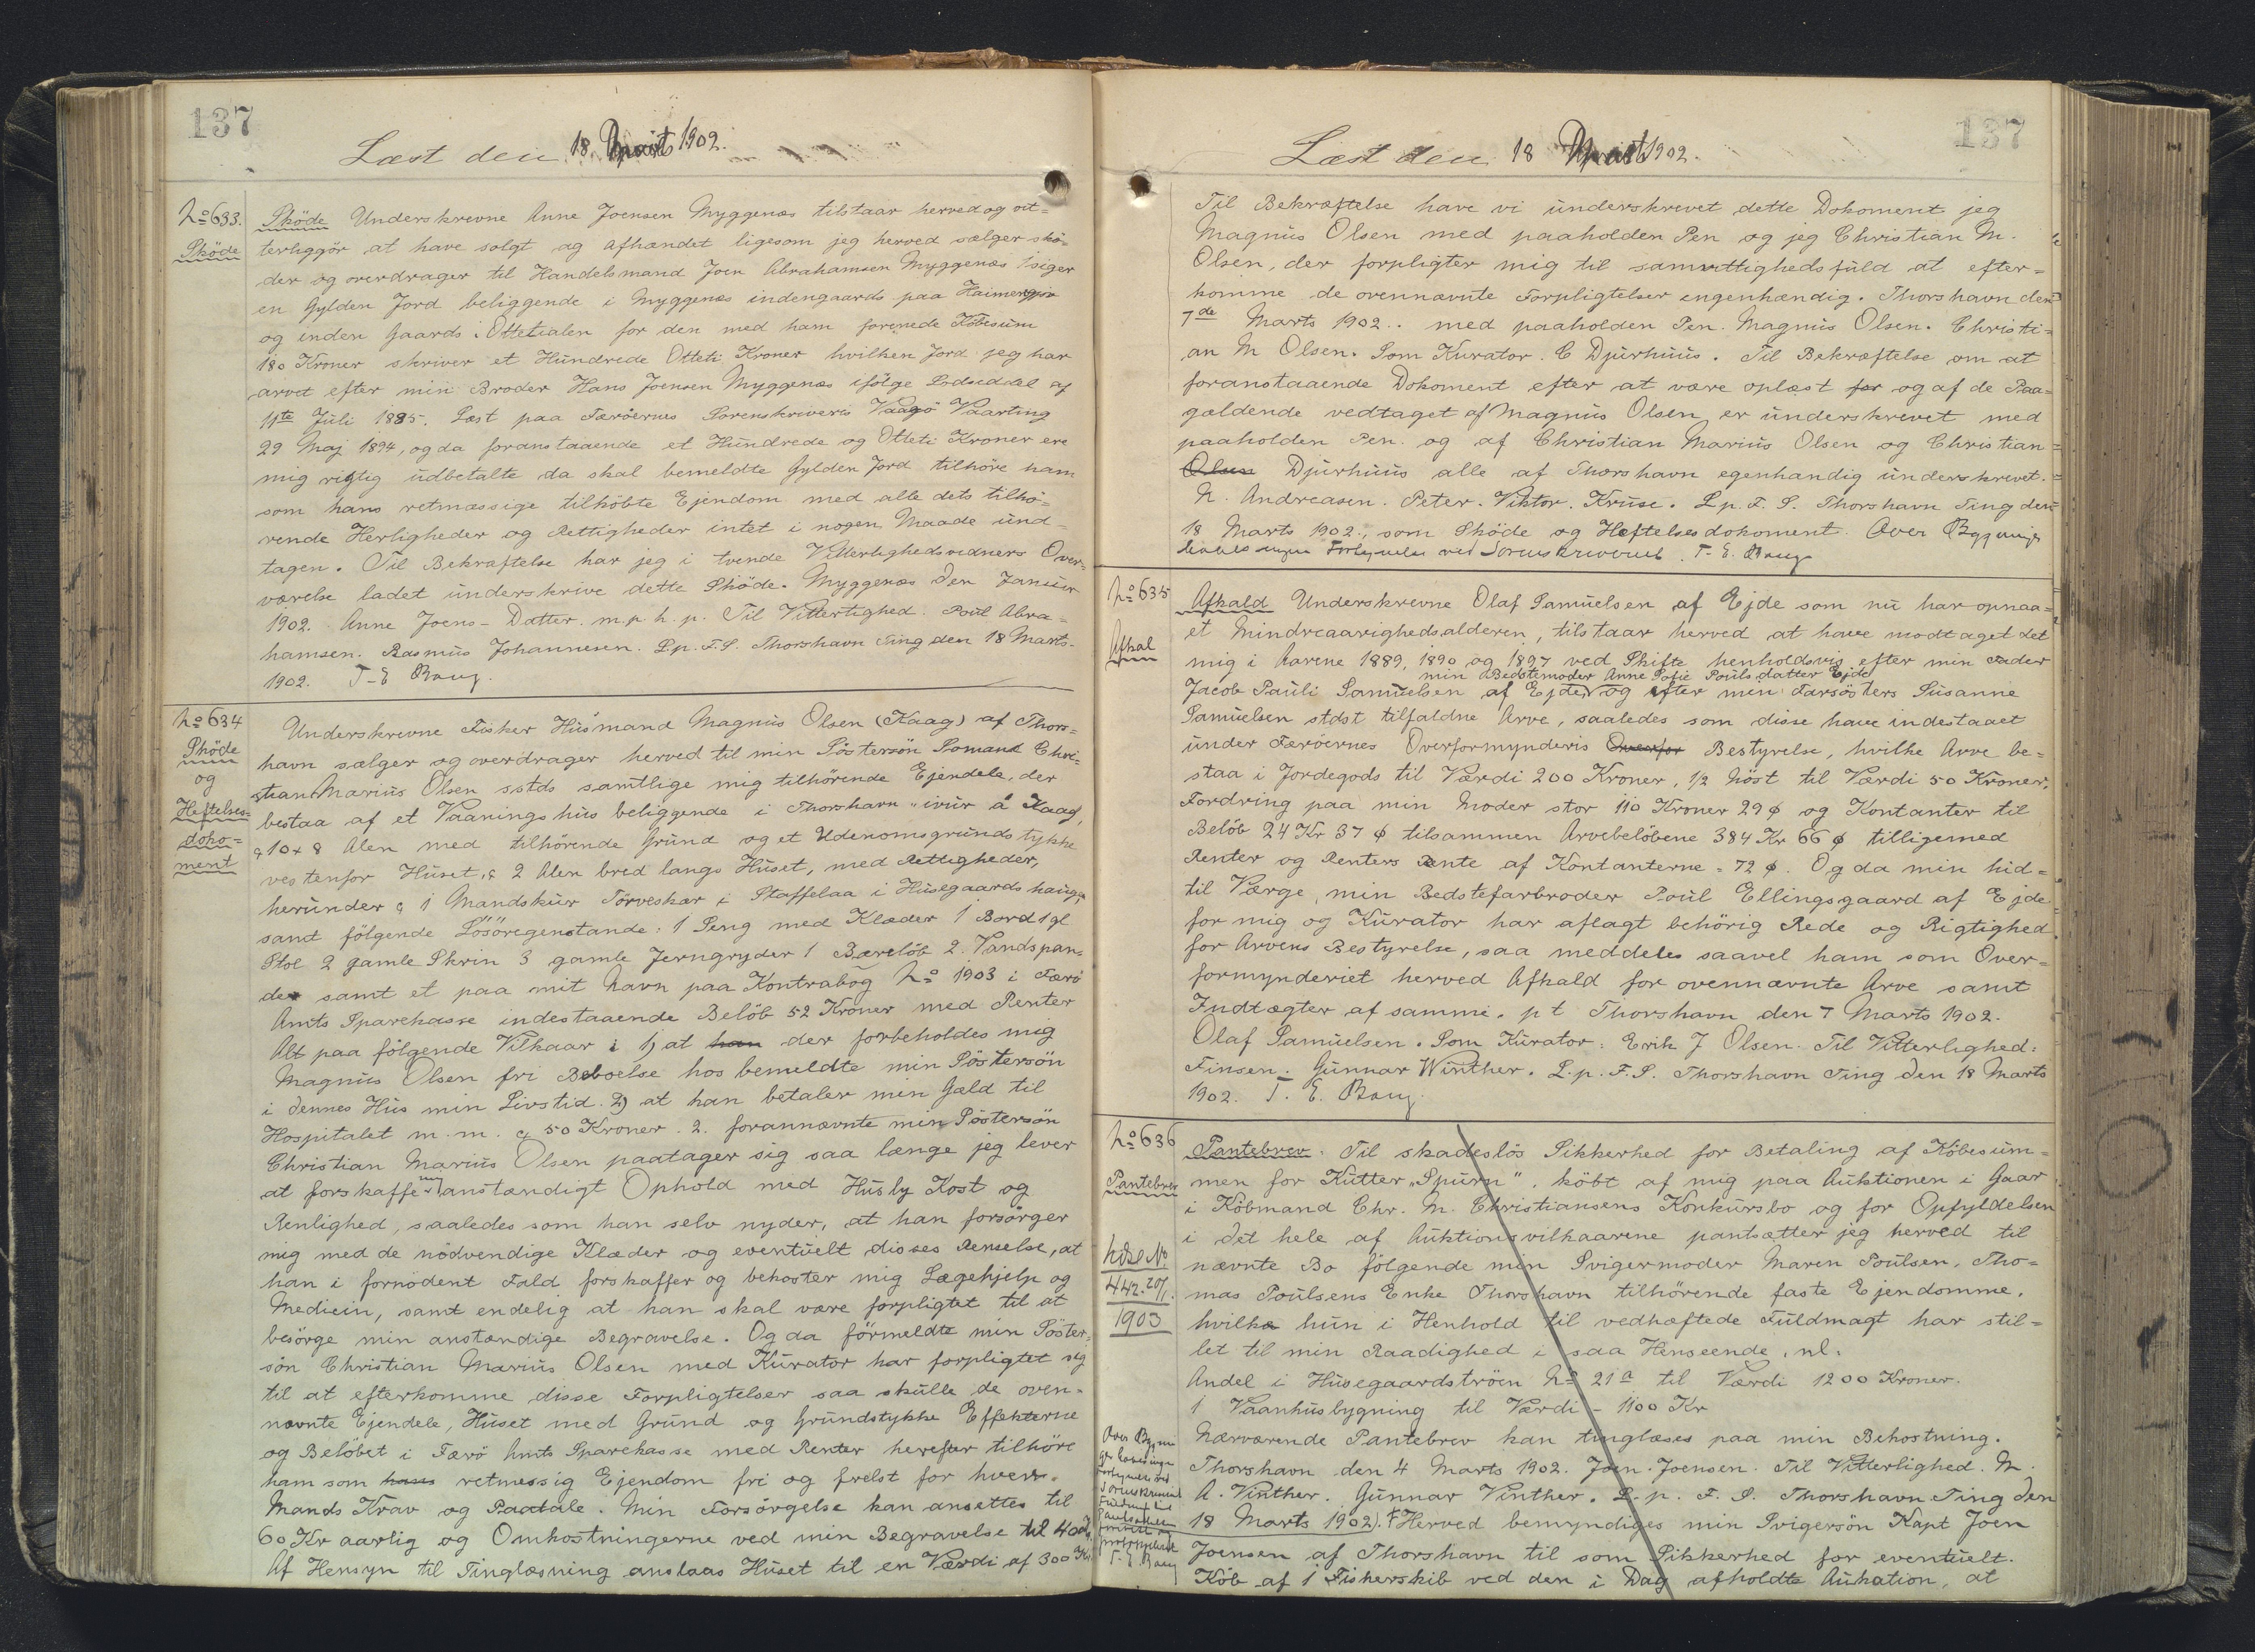 137
Læst den 18 Marts 1902.
No 633.
Sköde
Sköde Underskrevne Anne Joensen Myggenæs tilstaar herved og vit=
terliggör at have solgt og afhændet ligesom jeg herved sælger skö=
der og overdrager til Handelsmand Joen Abrahamsen Myggenæs 1 siger
en Gylden Jord beliggende i Myggenæs indengaards paa
og inden Gaards i Ottetialen for den med ham forenede Köbesum
180 Kroner skriver et Hundrede Otteti Kroner hvilken Jord jeg har
arvet efter min Broder Hans Joensen Myggenæs ifölge Lodseddel af
11te Juli 1885. Læst paa Færöernes Sorenskriveris Vaagö Vaarting
29 Maj 1894, og da foranstaaende et Hundrede og Otteti Kroner ere
mig rigtig udbetalte da skal bemeldte Gylden Jord tilhöre ham
som hans retmæssige tilköbte Ejendom med alle dets tilhö=
rende Herligheder og Rettigheder intet i nogen Maade und=
tagen. Til Bekræftelse har jeg i tvende Vitterlighedsvidners Over=
værelse ladet underskrive dette Sköde. Myggenæs den Januar
1902. Anne Joens-Datter. m. p. h. p. Til Vitterlighed. Poul Abra=
hamsen. Rasmus Johannesen. L. p. F. S. Thorshavn Ting den 18 Marts
1902. T. E. Bang.
No 634
Sköde
og
Heftelses=
doko=
ment
Underskrevne Fisker Husmand Magnus Olsen (Kaag) af Thors=
havn sælger og overdrager herved til min Söstersön Somand Chri=
stian Marius Olsen sstds samtlige mig tilhörende Ejendele, der
bestaa af et Vaaningshus beliggende i Thorshavn "ivur á Kaag,
a 10 x 8 Alen med tilhörende Grund og et Udenomsgrundstykke
vestenfor Huset, a 2 Alen bred langs Huset, med Rettigheder,
herunder a 1 Mandskur Törveskær i Staffelaa i Husegaards hauge
samt fölgende Lösöregenstande: 1 Seng med Klæder 1 Bord 1 gl
Stol 2 gamle Skrin 3 gamle Jerngryder 1 Bærelöb 2. Vandspan=
de samt et paa mit Navn paa Kontrabog No 1903 i Færö
Amts Sparekasse indestaaende Belöb 52 Kroner med Renter
Alt paa fölgende Vilkaar: 1) at han der forbeholdes mig
Magnus Olsen fri Beboelse hos bemeldte min Söstersön
i dennes Hus min Livstid. 2) at han betaler min Gæld til
Hospitalet m. m. a 50 Kroner. 2. forannævnte min Söstersön
Christian Marius Olsen paatager sig saa længe jeg lever
at forskaffe mig anstændigt Ophold med Husly Kost og
Renlighed, saaledes som han selv nyder, at han forsörger
mig med de nödvendige Klæder og eventuelt disses Renselse, at
han i fornödent Fald forskaffer og bekoster mig Lægehjelp og
Medicin, samt endelig at han skal være forpligtet til at
besörge min anstændige Begravelse. Og da förmeldte min Söster=
sön Christian Marius Olsen med Kurator har forpligtet sig
til at efterkomme disse Forpligtelser saa skulle de oven=
nævnte Ejendele, Huset med Grund og Grundstykke Effekterne
og Belöbet i Færö Amts Sparekasse med Renter herefter tilhöre
ham som hans retmessig Ejendom fri og frelst for hver=
Mands Krav og Paatale. Min Forsörgelse kan ansettes til
60 Kr aarlig og Omkostningerne ved min Begravelse til 40 Kr
Af Hensyn til Tinglæsning anslaas Huset til en Værdi af 300 Kr
137
Læst den 18 Marts 1902.
Til Bekræftelse have vi underskrevet dette Dokoment jeg
Magnus Olsen med paaholden Pen og jeg Christian M.
Olsen, der forpligter mig til samvittighedsfuld at efter=
komme de ovennævnte Forpligtelser engenhændig. Thorshavn den
7de Marts 1902.. med paaholden Pen. Magnus Olsen. Christi=
an M Olsen. Som Kurator. C Djurhuus. Til Bekræftelse om at
foranstaaende Dokoment efter at være oplæst for og af de Paa=
gældende vedtaget af Magnus Olsen er underskrevet med
paaholden Pen. og af Christian Marius Olsen og Christian
Olsen Djurhuus alle af Thorshavn egenhandig underskrevet.
N. Andreasen. Peter. Viktor. Kruse. L. p. F. S. Thorshavn Ting den
18 Marts 1902., som Sköde og Heftelsesdokoment. Over Bygninger
haves ingen Fortegnelse ved Sorenskriveriet. T. E. Bang
No 635
Afkal
Afkald Underskrevne Olaf Samuelsen af Ejde som nu har opnaa=
et Mindreaarighedsalderen, tilstaar herved at have modtaget det
mig i Aarene 1889, 1890 og 1897 ved Skifte henholdsvis efter min Fader
min Bedstemoder Anne Sofie Pouls datter Ejde
Jacob Pauli Samuelsen af Ejde og efter min Farsösters Susanne
Samuelsen stdst tilfaldne Arve, saaledes som disse have indestaaet
under Færöernes Overformynderis Overfor Bestyrelse, hvilke Arve be=
staa i Jordegods til Værdi 200 Kroner, 1/2 Nöst til Værdi 50 Kroner,
Fordring paa min Moder stor 110 Kroner 29 ø og Kontanter til
Belöb 24 Kr 37 ø tilsammen Arvebelöbene 384 Kr 66 ø tilligemed
Renter og Renters Rente af Kontanterne = 72 ø. Og da min hid=
til Værge, min Bedstefarbroder Poul Ellingsgaard af Ejde
for mig og Kurator har aflagt behörig Rede og Rigtighed
for Arvens Bestyrelse, saa meddeles saavel ham som Over=
formynderiet herved Afkald for ovennævnte Arve samt
Indtægter af samme. p t Thorshavn den 7 Marts 1902.
Olaf Samuelsen. Som Kurator: Erik J Olsen. Til Vitterlighed:
Finsen. Gunnar Winther. L. p. F. S. Thorshavn Ting den 18 Marts
1902. T. E. Bang.
No 636
Pantebrev
442. 20/1.
1903
Pantebrev. Til skadeslös Sikkerhed for Betaling af Köbesum=
men for Kutter "Spurn". köbt af mig paa Auktionen i Gaar
i Köbmand Chr. M. Christiansens Konkursbo og for Opfyldelsen
i det hele af Auktionsvilkaarene pantsætter jeg herved til
nævnte Bo fölgende min Svigermoder Maren Poulsen, Tho=
mas Poulsens Enke Thorshavn tilhörende faste Ejendomme,
hvilke hun i Henhold til vedhæftede Fuldmagt har stil=
let til min Raadighed i saa Henseende. nl.
Andel i Husegaardströen No 21a til Værdi 1200 Kroner.
1 Vaanhusbygning til Værdi - 1100 Kr
Nærværende Pantebrev kan tinglæses paa min Bekostning.
Thorshavn den 4 Marts 1902. Joen. Joensen. Til Vitterlighed. M.
A. Vinther. Gunnar Vinther. L. p. F. S. Thorshavn Ting den
18 Marts 1902). Herved bemyndiges min Svigersön Kapt Joen
Joensen af Thorshavn til som Sikkerhed for eventuelt.
Köb af 1 Fiskerskib ved den i Dag afholdte Auhation, at